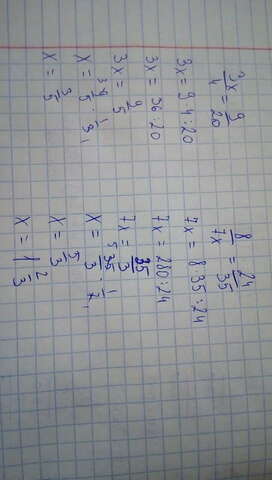 3x/4 = 9/20
3x = 9·4:20
3x = 36:20
3x = 9/5
x = 9/5 · 1/3
x = 3/5
8/7x = 24/35
7x = 8·35:24
7x = 280:24
7x = 35/3
x = 35/3 · 1/7
x = 5/3
x = 1 2/3